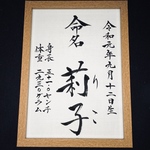 令和元年九月十二日生
命名 莉子
りこ
身長 五十一・〇センチ
体重 二九三〇グラム